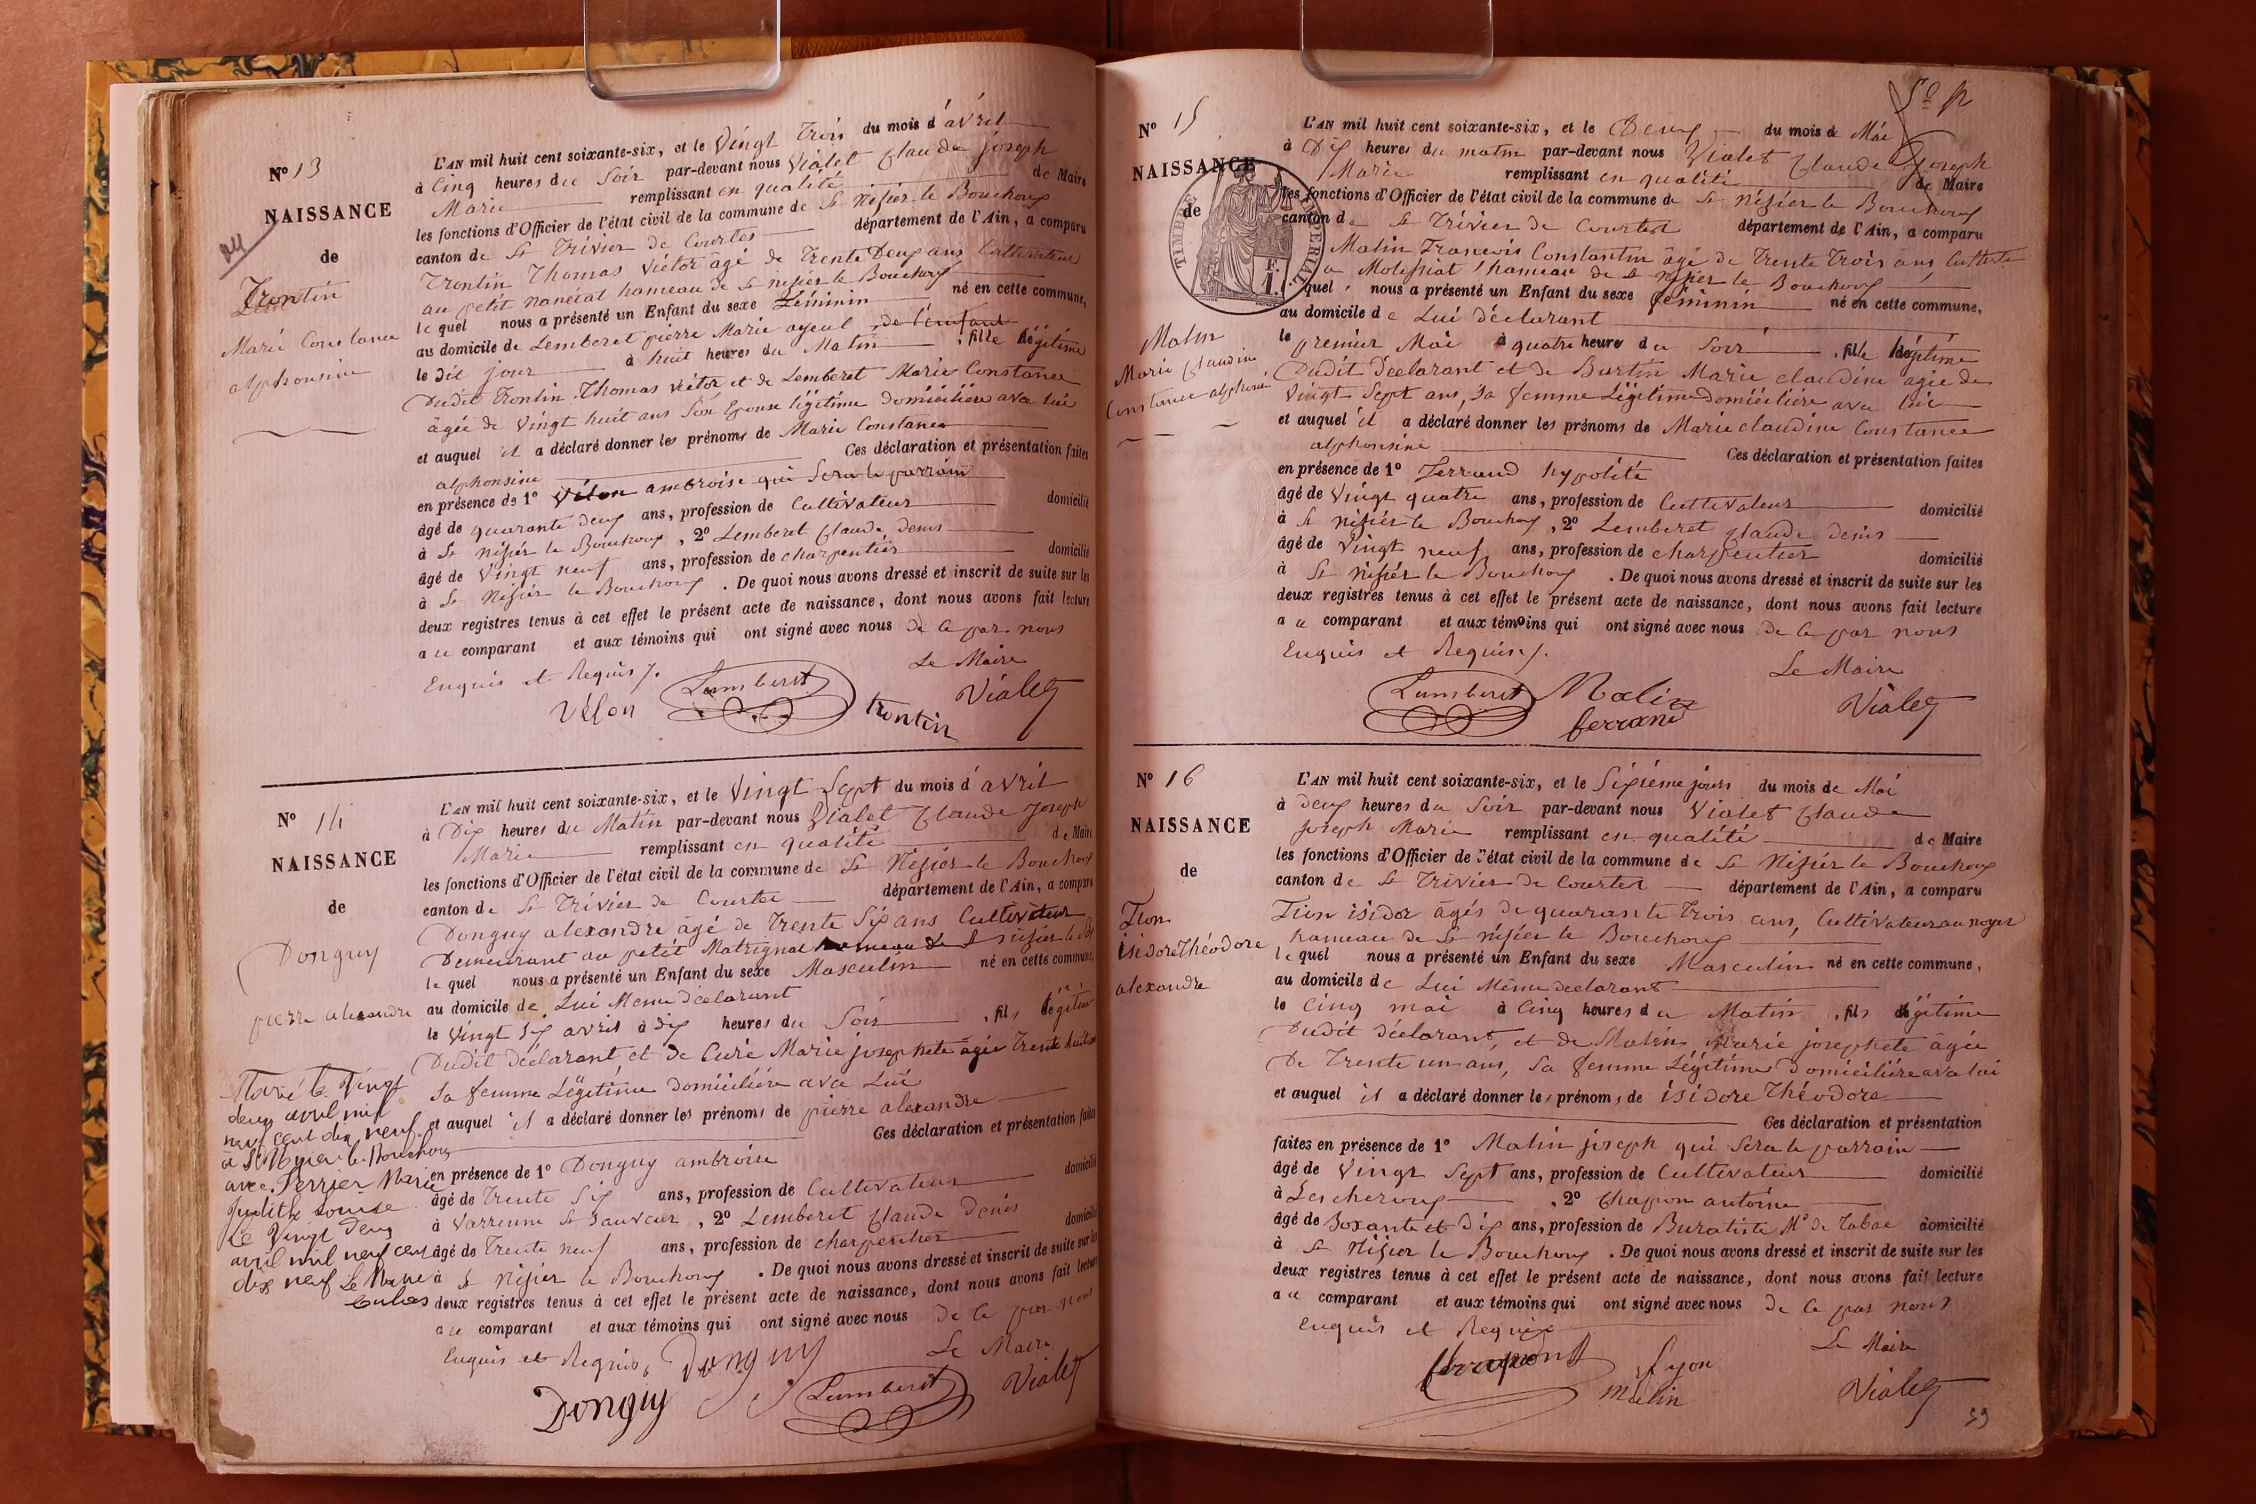 N° 13
NAISSANCE
de
Trontin
Marie Constance
alphonsine
L'AN mil huit cent soixante-six, et le Vingt Trois du mois d'avril
à Cinq heures du Soir par-devant nous Vialet Claude joseph
Marie remplissant en qualité de Maire
les fonctions d'Officier de l'état civil de la commune de St Nisier le Bouchoux
canton de St Trivier de Courtes département de l'Ain, a comparu
Trontin Thomas Victor âgé de Trente Deux ans Cultivateur
au petit hameau de St nisier le Bouchoux
lequel nous a présenté un Enfant du sexe Féminin né en cette commune,
au domicile de Lemberet pierre Marie ayeul de l'enfant
le dit jour à huit heures du Matin, fille légitime
Dudit Trontin Thomas victor et de Lemberet Marie Constance
âgée de Vingt huit ans Son Epouse légitime domiciliée avec lui
et auquel il a déclaré donner les prénoms de Marie Constance
alphonsine Ces déclaration et présentation faites
en présence de 1° Vélon ambroise qui Sera le parrain
âgé de quarante deux ans, profession de Cultivateur domicilié
à St nisier le Bouchoux, 2° Lemberet Claude denis
âgé de Vingt neuf ans, profession de charpentier domicilié
à St Nisier le Bouchoux. De quoi nous avons dressé et inscrit de suite sur les
deux registres tenus à cet effet le présent acte de naissance, dont nous avons fait lecture
au comparant et aux témoins qui ont signé avec nous de ce par nous
Enquis et Requis /.
Le Maire
Vélon Lemberet trontin Vialet
N° 14
NAISSANCE
de
Donguy
pierre alexandre
L'AN mil huit cent soixante-six, et le Vingt Sept du mois d'avril
à Dix heures du Matin par-devant nous Vialet Claude Joseph
Marie remplissant en qualité de Maire
les fonctions d'Officier de l'état civil de la commune de St Nisier le Bouchoux
canton de St Trivier de Courtes département de l'Ain, a comparu
Donguy alexandre âgé de Trente Six ans Cultivateur
Demeurant au petit Matrignat hameau de St nisier le
lequel nous a présenté un Enfant du sexe Masculin né en cette commune,
au domicile de Lui Même déclarant
le Vingt Six avril à Dix heures du Soir, fils légitime
Dudit déclarant et de Curé Marie josephete âgée Trente huit
Sa femme Légitime domiciliée avec Lui
et auquel il a déclaré donner les prénoms de pierre alexandre
Ces déclaration et présentation faites
en présence de 1° Donguy ambroise
âgé de Trente Six ans, profession de Cultivateur domicilié
à Varenne St Sauveur, 2° Lemberet Claude Denis
âgé de Trente neuf ans, profession de charpentier domicilié
à St Nisier le Bouchoux. De quoi nous avons dressé et inscrit de suite sur les
deux registres tenus à cet effet le présent acte de naissance, dont nous avons fait lecture
au comparant et aux témoins qui ont signé avec nous de ce par nous
Enquis et Requis,
Le Maire
Donguy
Donguy Lemberet Vialet
Marié le Vingt
deux avril mil
neuf cent dix neuf
à St Nizier le Bouchoux
avec Perrier Marie
Judith Louise
Le Vingt deux
avril mil neuf cent
dix neuf Le Maire
N° 15
NAISSANCE
de
TIMBRE IMPERIAL
Malin
Marie Claudine
Constance alphonsine
L'AN mil huit cent soixante-six, et le Deux du mois de Mai
à Dix heures du matin par-devant nous Vialet Claude Joseph
Marie remplissant en qualité de Maire
les fonctions d'Officier de l'état civil de la commune de St Nisier le Bouchoux
canton de St Trivier de Courtes département de l'Ain, a comparu
Malin Francois Constantin âgé de Trente Trois ans Cultivateur
a Molissiat hameau de St nisier le Bouchoux
lequel nous a présenté un Enfant du sexe féminin né en cette commune,
au domicile de Lui déclarant
le premier Mai à quatre heures du Soir, fille légitime
Dudit Déclarant et de Burtin Marie claudine agée de
Vingt Sept ans, Sa femme Légitime domiciliée avec lui
et auquel il a déclaré donner les prénoms de Marie claudine Constance
alphonsine Ces déclaration et présentation faites
en présence de 1° Ferrand hypolite
âgé de Vingt quatre ans, profession de Cultivateur domicilié
à St nisier le Bouchoux, 2° Lemberet Claude denis
âgé de Vingt neuf ans, profession de charpentier domicilié
à St Nisier le Bouchoux. De quoi nous avons dressé et inscrit de suite sur les
deux registres tenus à cet effet le présent acte de naissance, dont nous avons fait lecture
au comparant et aux témoins qui ont signé avec nous de ce par nous
Enquis et Requis /.
Le Maire
Lemberet Malin Vialet
ferrand
N° 16
NAISSANCE
de
Tion
isidore Théodore
alexandre
L'AN mil huit cent soixante-six, et le Sixième jour du mois de Mai
à deux heures du Soir par-devant nous Vialet Claude
joseph Marie remplissant en qualité de Maire
les fonctions d'Officier de l'état civil de la commune de St Nisier le Bouchoux
canton de St Trivier de Courtes département de l'Ain, a comparu
Tion isidor âgés de quarante trois ans, Cultivateur au noyer
hameau de St nisier le Bouchoux
lequel nous a présenté un Enfant du sexe Masculin né en cette commune,
au domicile de Lui Même déclarant
le Cinq mai à Cinq heures du Matin, fils légitime
Dudit déclarant, et de Malin Marie josephete âgée
De Trente un ans, Sa femme Légitime Domiciliée avec lui
et auquel il a déclaré donner les prénoms de isidore Théodore
Ces déclaration et présentation
faites en présence de 1° Malin joseph qui Sera le parrain
âgé de Vingt Sept ans, profession de Cultivateur domicilié
à Lescheroux, 2° Chapon antoine
âgé de Soxante et Dix ans, profession de Buraliste Md de Tabac domicilié
à St Nisier le Bouchoux. De quoi nous avons dressé et inscrit de suite sur les
deux registres tenus à cet effet le présent acte de naissance, dont nous avons fait lecture
au comparant et aux témoins qui ont signé avec nous de ce par nous
Enquis et Requis
Le Maire
Malin Vialet
59